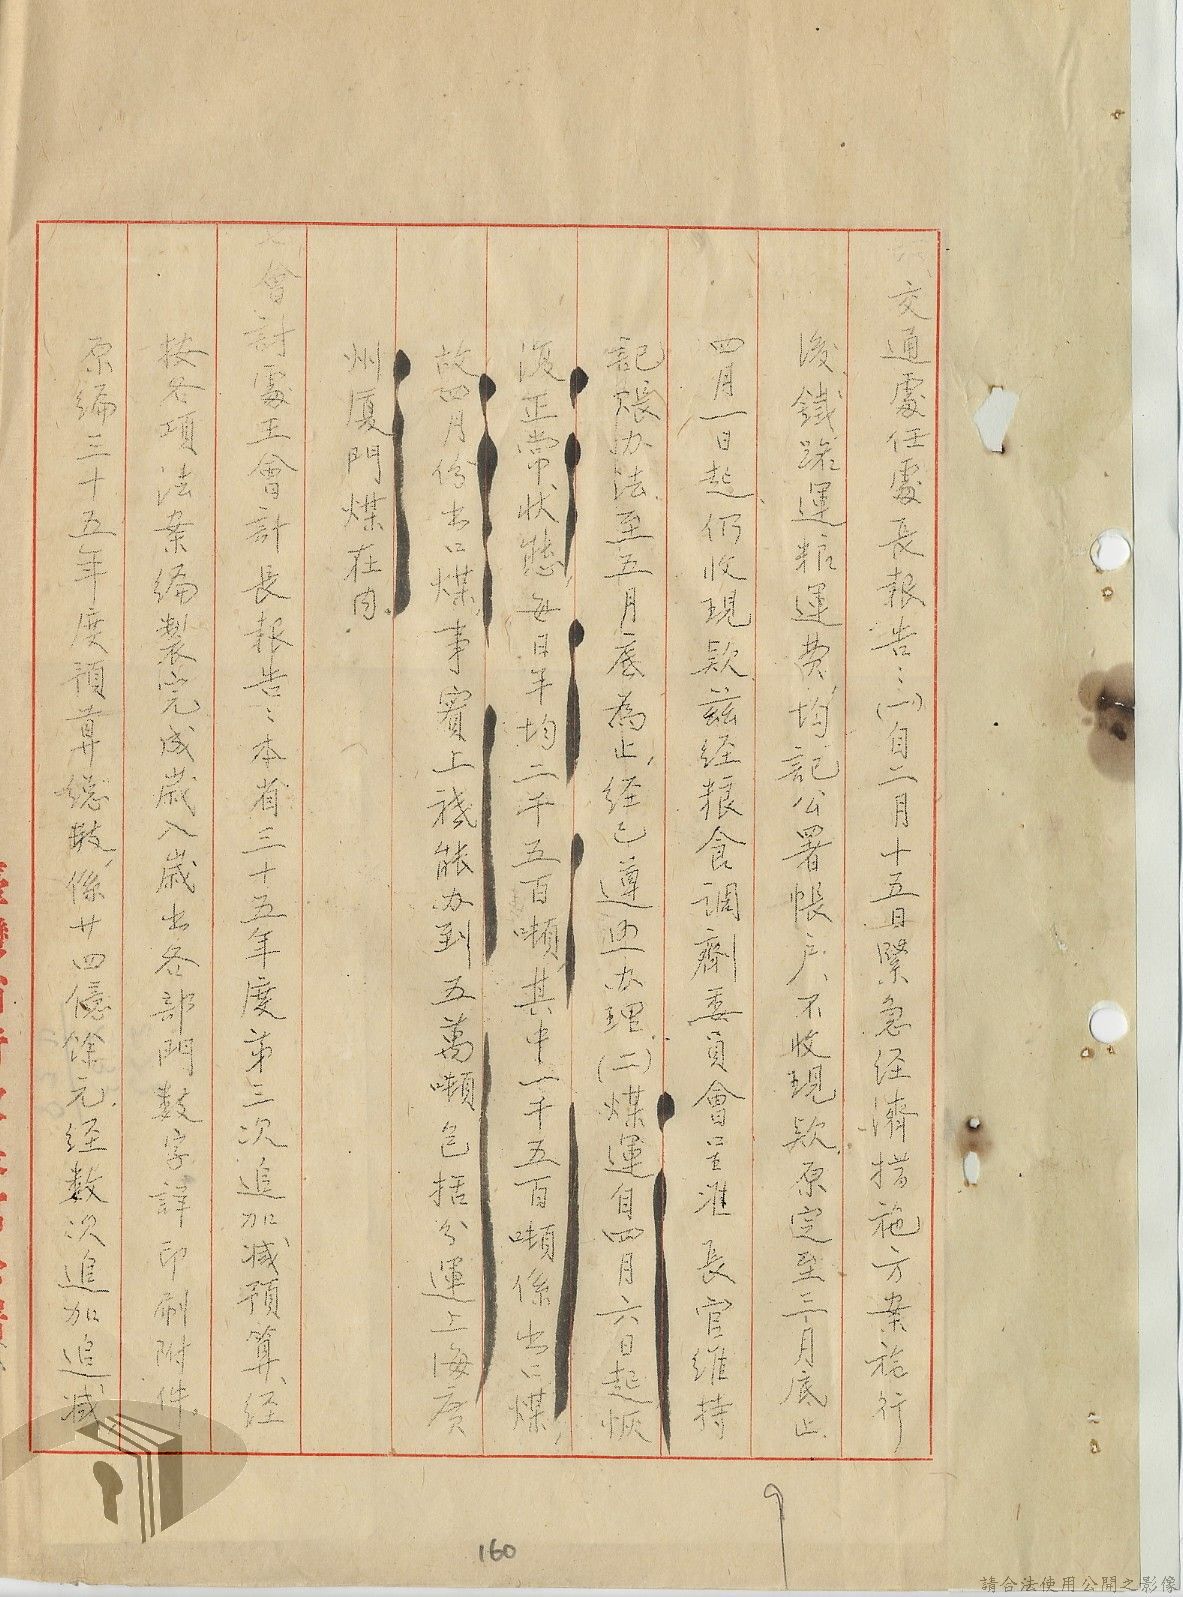 交通處任處長報告：(一)自二月十五日緊急经濟措施方案施行
後，鐵路運粮運费，均記公署帳户，不收現款，原定至三月底止，
四月一日起，仍收現款，兹经粮食調劑委員會呈准　長官維持
記賬办法，至五月底為止，经已遵照办理。(二)煤運自四月六日起恢
復正常狀態，每日平均二千五百噸，其中一千五百噸係出口煤，
故四月份出口煤，事實上祗能办到五萬噸，包括分運上海廣
州厦門煤在内。
會計處王會計長報告：本省三十五年度第三次追加减預算，经
按各項法案編製完成，歲入歲出各部門数字詳印刷附件。
原編三十五年度預算總数，係廿四億餘元，经数次追加追减
160
請合法使用公開之影像